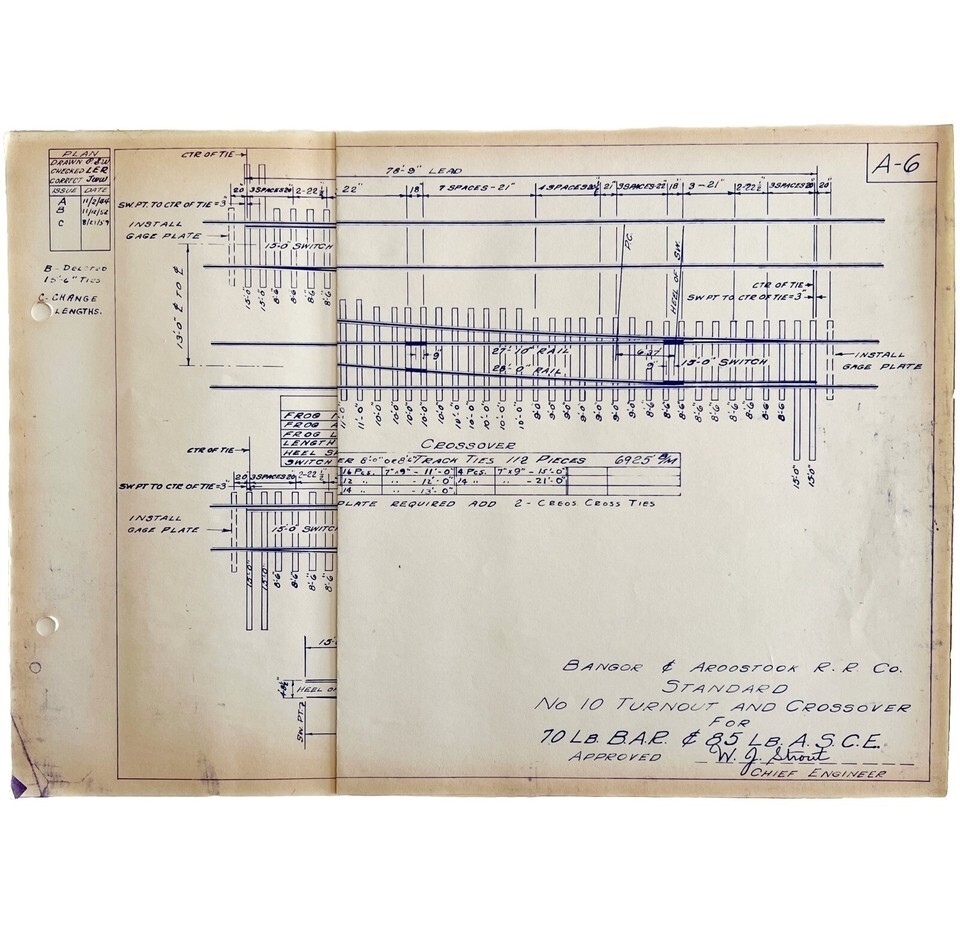 PLAN
DRAWN
CHECKED LER
CORRECT
ISSUE DATE
A 11/2/44
B 11/12/52
C 8/21/59
B - DELETED
15'-6" TIES
C-CHANGE
LENGTHS.
A-6
CTR OF TIE
78'-9" LEAD
20" 3 SPACES 20" 2-22½" 22" 18" 7 SPACES-21" 4 SPACES 20½" 21" 3 SPACES-22" 18" 3-21" 2-22½" 3 SPACES 20" 20"
SW.PT. TO CTR OF TIE=3"
INSTALL
GAGE PLATE
15'-0" SWITCH
P.C.
HEEL OF SW.
13'-0" ℄ TO ℄
CTR OF TIE
SW PT TO CTR OF TIE=3"
15'-0" 15'-0" 8'-6" 8'-6" 8'-6" 8'-6"
9" 27'-10" RAIL 6.37
28'-0" RAIL 9" 15'-0" SWITCH
INSTALL
GAGE PLATE
11'-0" 11'-0" 10'-0" 10'-0" 10'-0" 10'-0" 10'-0" 10'-0" 10'-0" 10'-0" 10'-0" 10'-0" 9'-0" 9'-0" 9'-0" 9'-0" 9'-0" 9'-0" 9'-0" 8'-6" 8'-6" 8'-6" 8'-6" 8'-6" 8'-6" 8'-6" 8'-6" 8'-6"
15'-0" 15'-0"
FROG
FROG
FROG L
LENGTH
HEEL S
SWITCH
CROSSOVER
ER 8'-0" OR 8'-6" TRACK TIES 112 PIECES 6925 B/M
16 PCS. 7"x9" - 11'-0" 4 PCS. 7"x9" - 15'-0"
12 " " - 12'-0" 14 " " - 21'-0"
14 " " - 13'-0"
PLATE REQUIRED ADD 2 - CREOS CROSS TIES
CTR OF TIE
20" 3 SPACES 20" 2-22½"
SW PT TO CTR OF TIE=3"
INSTALL
GAGE PLATE
15'-0" SWITCH
15'-0" 15'-0" 8'-6" 8'-6" 8'-6" 8'-6"
15'-
HEEL O
SW. PT.
BANGOR & AROOSTOOK R. R. CO.
STANDARD
NO 10 TURNOUT AND CROSSOVER
FOR
70 LB. B.A.R. & 85 LB. A.S.C.E.
APPROVED W. J. Strout
CHIEF ENGINEER